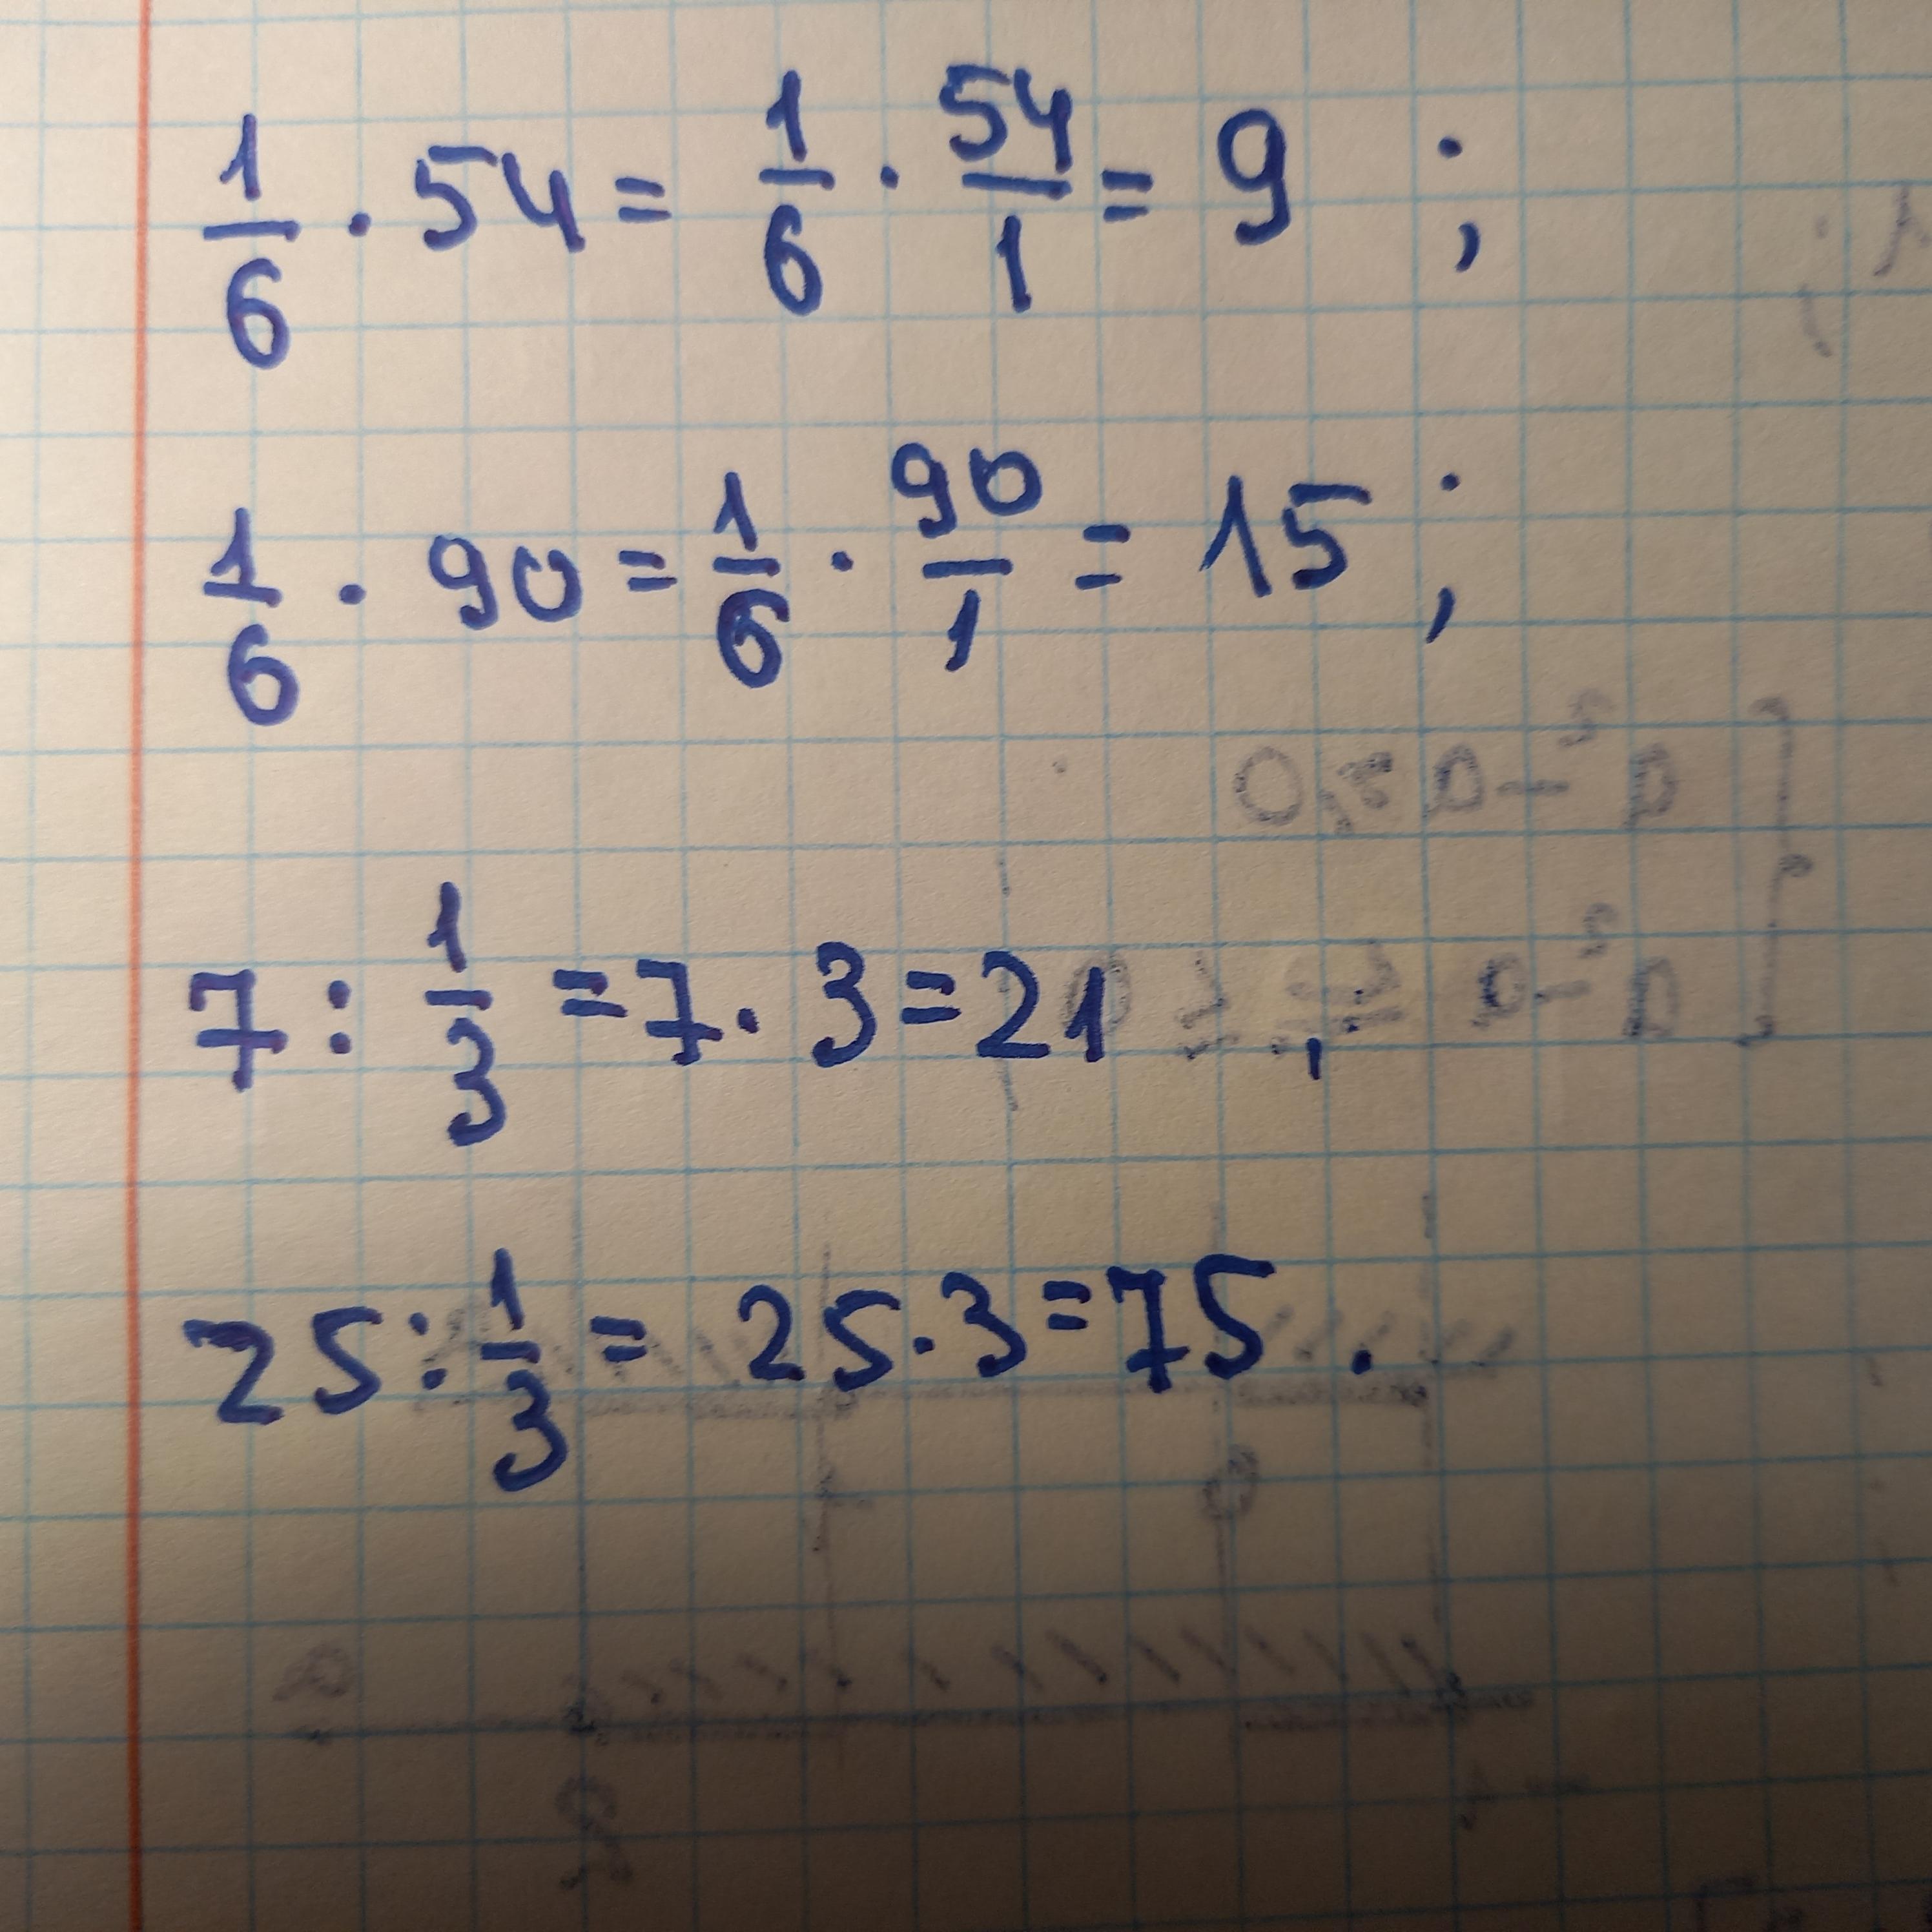 1/6 · 54 = 1/6 · 54/1 = 9 ;
1/6 · 90 = 1/6 · 90/1 = 15 ;
7 : 1/3 = 7 · 3 = 21 ,
25 : 1/3 = 25 · 3 = 75 .